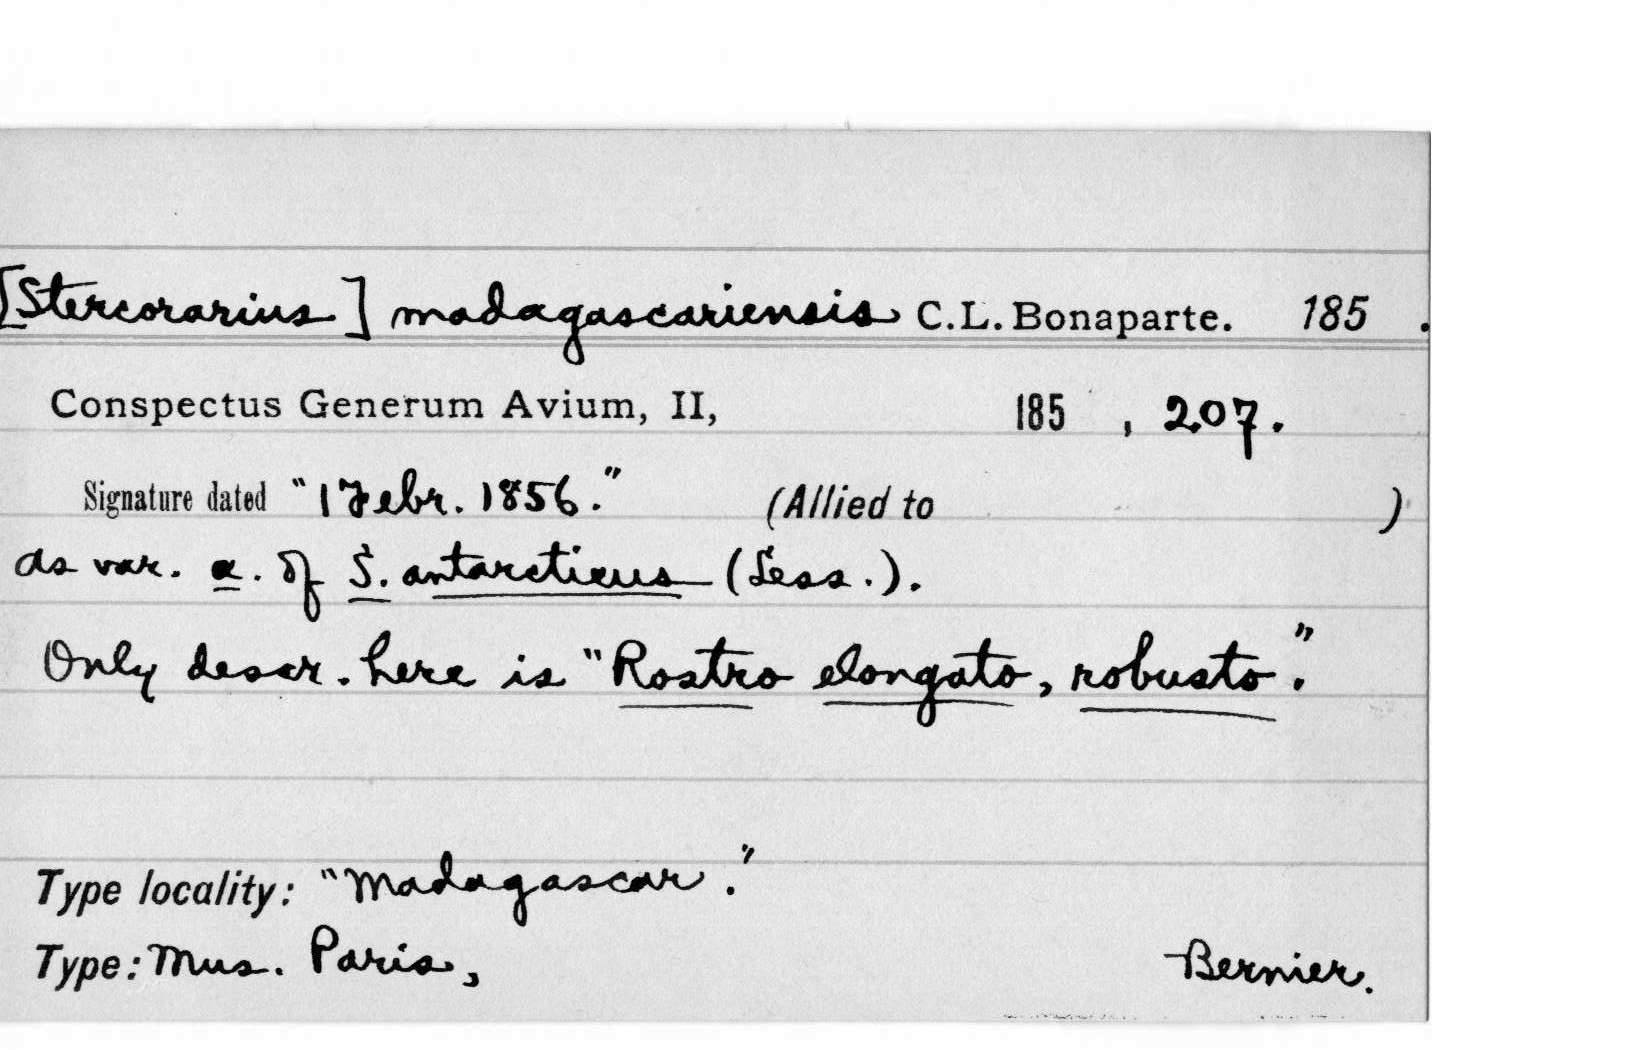 [Stercorarius] madagascariensis C.L. Bonaparte. 185 .
Conspectus Generum Avium, II, 185 , 207.
Signature dated "1 Febr. 1856." (Allied to )
as var. a. of S. antarcticus (Less.).
Only descr. here is "Rostro elongato, robusto."
Type locality: "Madagascar."
Type: Mus. Paris, Bernier.